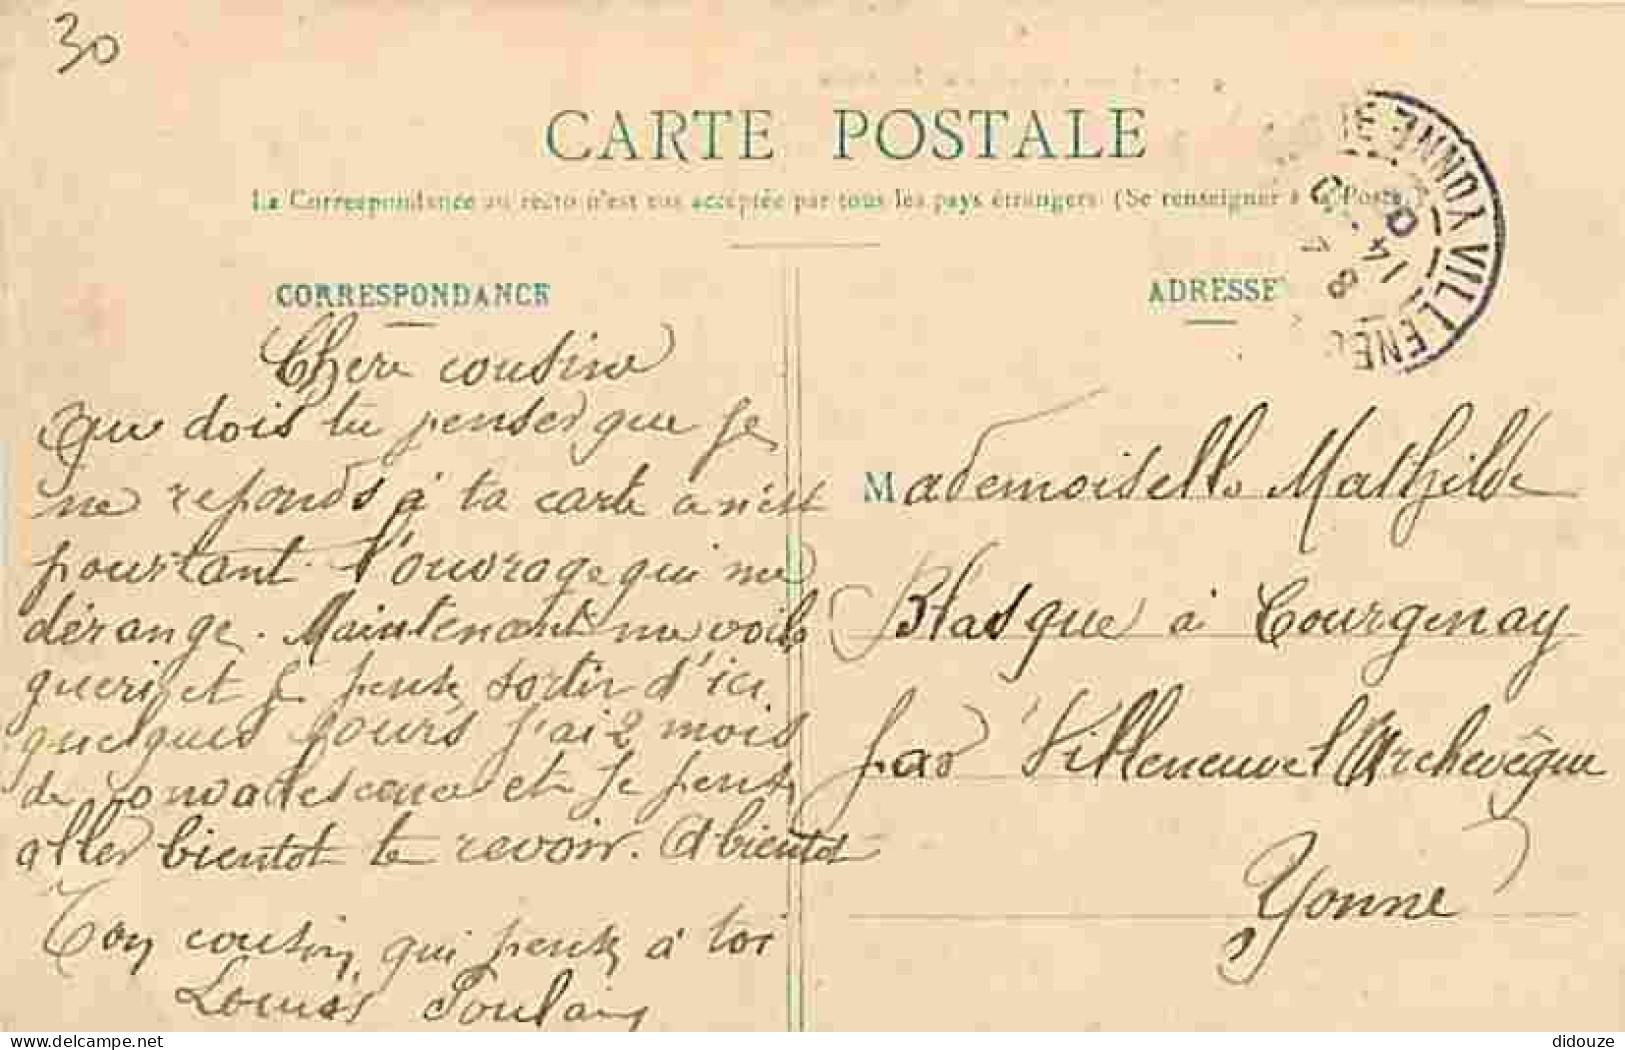 30
CARTE POSTALE
La Correspondance au recto n'est pas acceptée par tous les pays étrangers (Se renseigner à la Poste.)
CORRESPONDANCE
Chere cousine
Que dois tu penser que je
ne reponds à ta carte ce n'est
pourtant l'ouvrage qui me
dérange. Maintenant me voila
gueri et je pense sortir d'ici
quelques jours j'ai 2 mois
de convalescence et je pense
aller bientot te revoir. A bientot
Ton cousin qui pense à toi
Louis Poulain
ADRESSE
Mademoiselle Mathilde
à Courgenay
par Villeneuve l'Archevêque
Yonne
VILLENEU
YONNE
delcampe.net
didouze